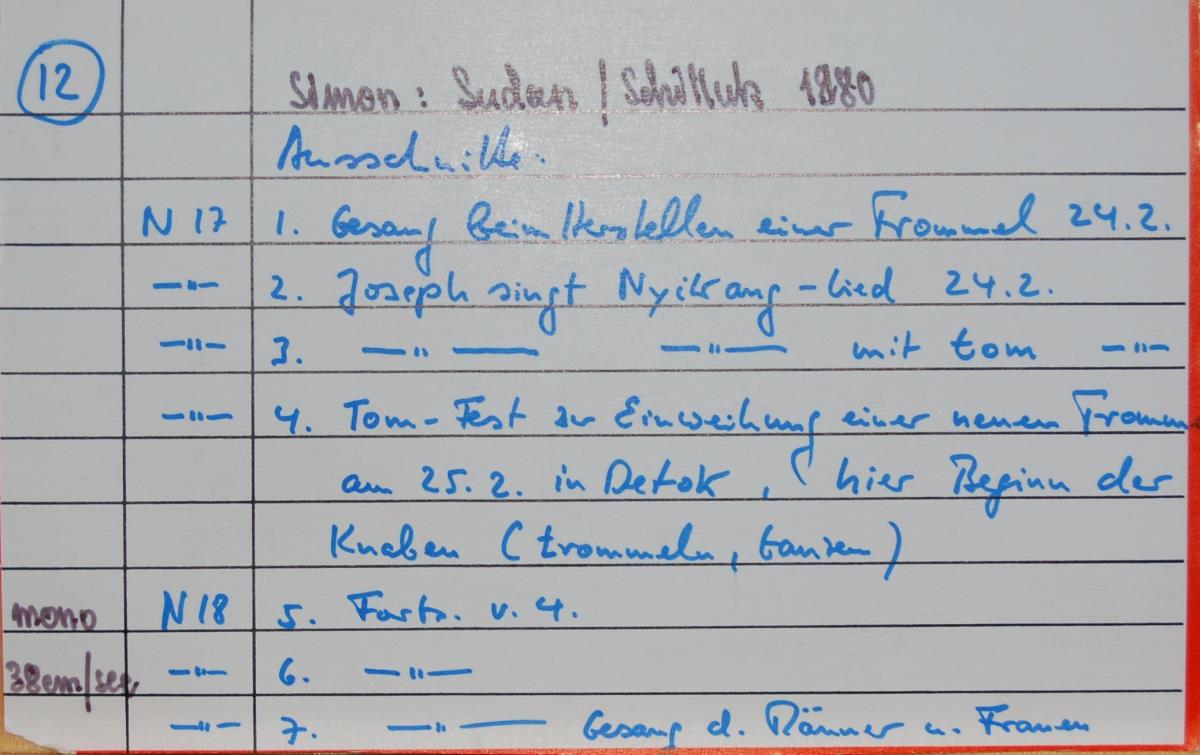 12 Simon: Sudan / Schilluk 1980
Ausschnitte.
N 17 1. Gesang beim Herstellen einer Trommel 24.2.
—"— 2. Joseph singt Nyikang-lied 24.2.
—"— 3. —"— —"— mit tom —"—
—"— 4. Tom-Fest zur Einweihung einer neuen Tromm
am 25.2. in Detok, hier Beginn der
Knaben (trommeln, tanzen)
mono N 18 5. Forts. v. 4.
38cm/sec —"— 6. —"—
—"— 7. —"— Gesang d. Männer u. Frauen